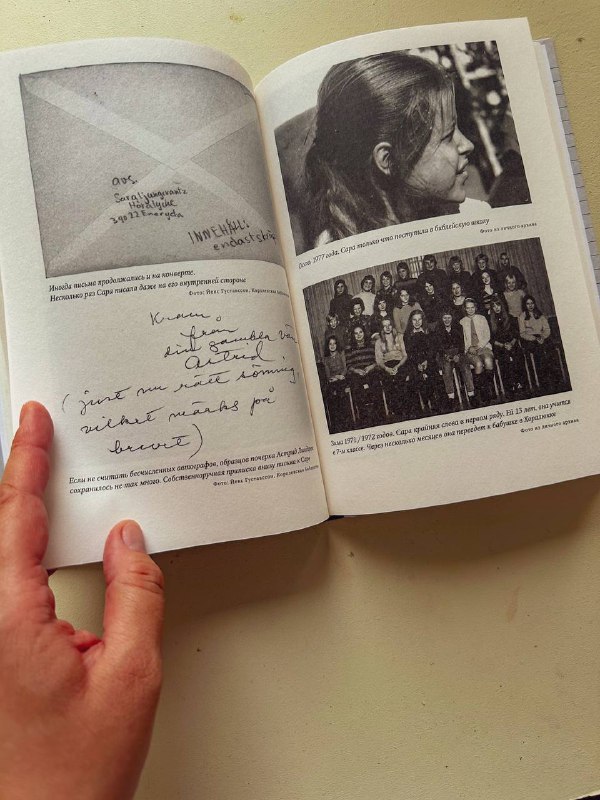 avs.
Sara Ljungcrantz
Hördlycke
36022 Eneryda
INNEHÅLL:
endast
Иногда письма продолжались и на конверте.
Несколько раз Сара писала даже на его внутренней стороне
Фото: Йенс Густавссон, Королевская
Kram
från
din gamla vän
Astrid
(just nu rätt sömnig,
vilket märks på
brevet)
Если не считать бесчисленных автографов, образцов почерка Астрид
сохранилось не так много. Собственноручная приписка внизу письма к Саре
Фото: Йенс Густавссон, Королевская
1977 года. Сара только что поступила в библейскую школу
Фото из личного архива
Зима 1971/1972 годов. Сара крайняя слева в первом ряду. Ей 13 лет, она учится
в 7-м классе. Через несколько месяцев она переедет к бабушке в
Фото из личного архива